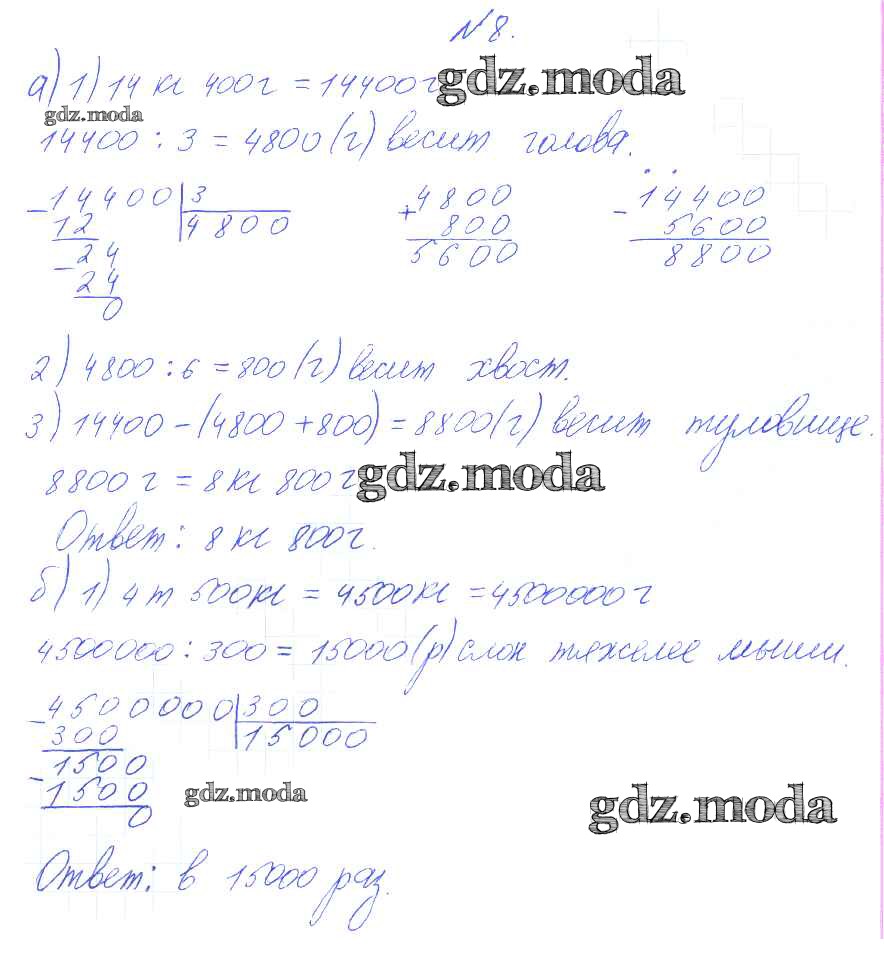 №8.
а) 1) 14 кг 400г = 14400г
gdz.moda
gdz.moda
14400 : 3 = 4800 (г) весит голова.
- 14400 | 3
12 | 4800
- 24
24
0
+ 4800
800
5600
- 14400
5600
8800
2) 4800 : 6 = 800 (г) весит хвост.
3) 14400 - (4800 + 800) = 8800 (г) весит туловище.
8800 г = 8 кг 800 г
gdz.moda
Ответ: 8 кг 800г.
б) 1) 4 т 500кг = 4500кг = 4500000г
4500000 : 300 = 15000 (р) слон тяжелее мыши.
- 4500000 | 300
300 | 15000
- 1500
1500
0
gdz.moda
gdz.moda
Ответ: в 15000 раз.